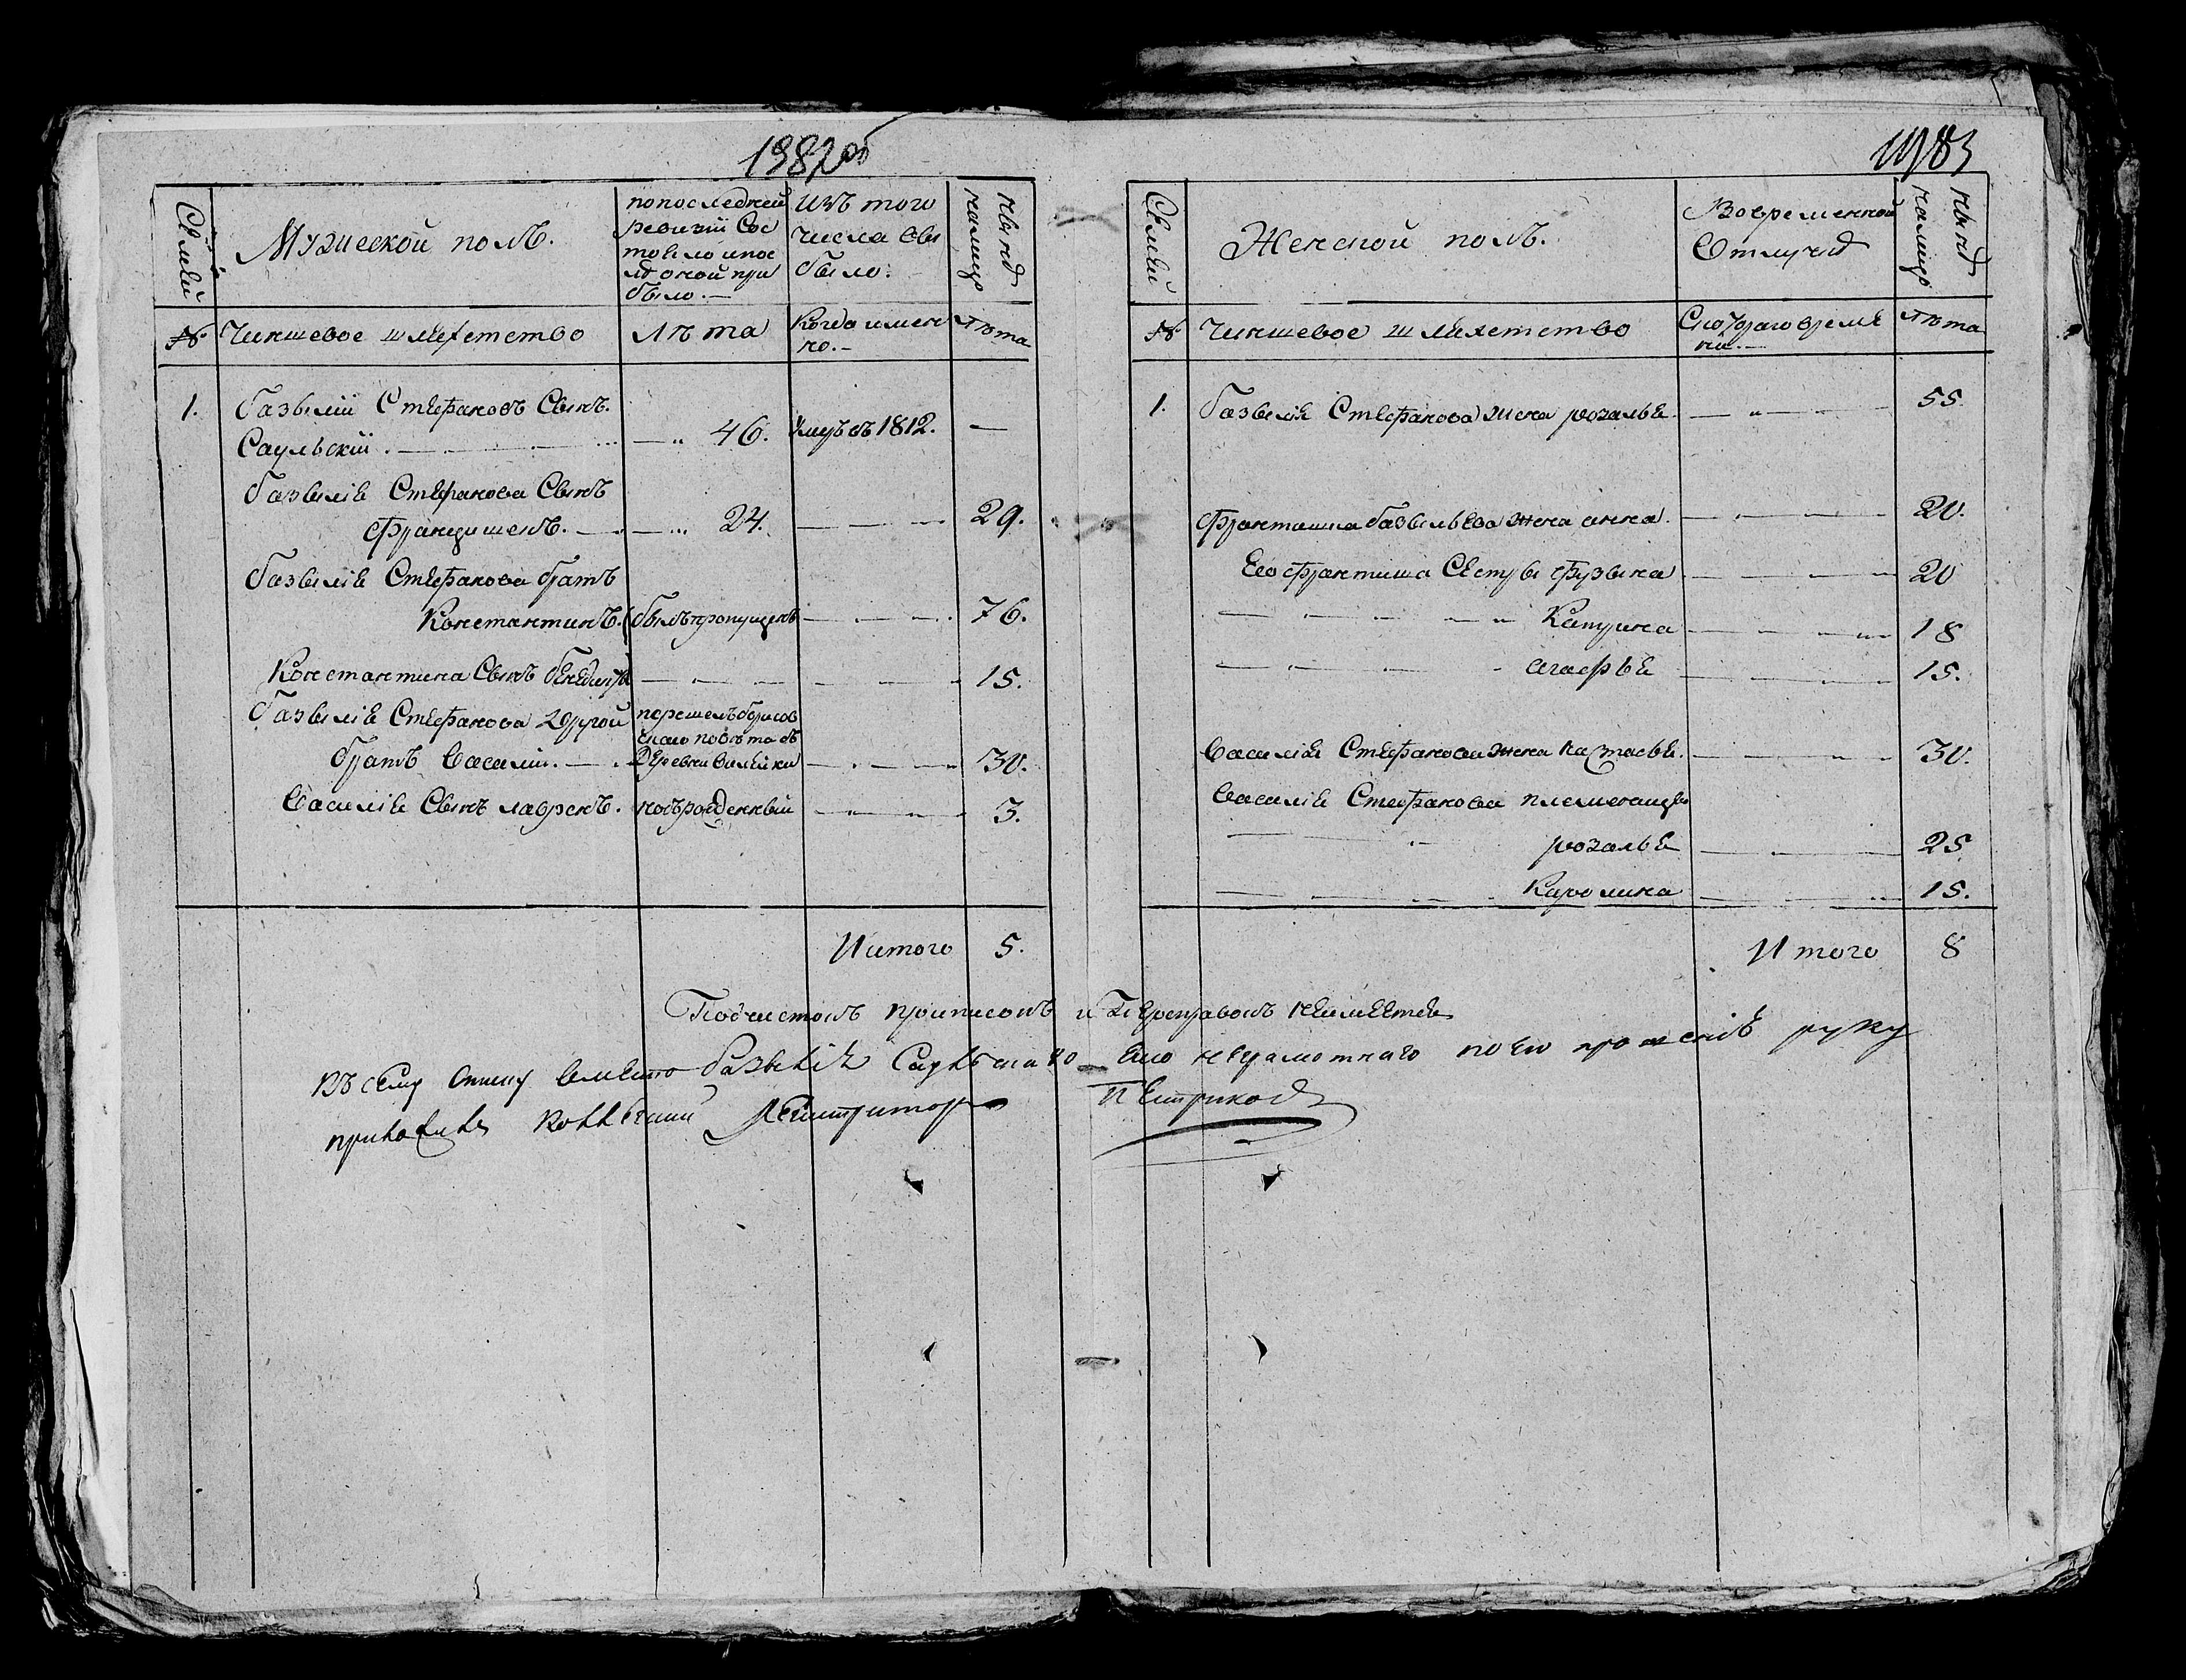 1982 об
1983
Семьи
Мужеской полъ.
попоследней
ревизiи Сос
тояло ипос
лѣ оной при
было.—
Изъ того
числа вы
было:
нынѣ
налицо
№
Чиншевое шляхетство
Лѣта
Когда имен
но.—
Лѣта
1. Базылiй Стефановъ Сынъ.
Саульскiй . — — — — „ 46. Умръ въ 1812. —
Базылiя Стефанова Сынъ
Францишекъ. — — „ 24. — — — 29.
Базылiя Стефанова братъ
Константинъ. былъ пропущенъ — — — 76.
Константина Сынъ Бенедиктъ — — — — — 15.
Базылiя Стефанова 2 другой
братъ Василiй. — .
перешелъ борисов
скаго повѣта въ
Деревни Вилейки — — — 30.
Василiя Сынъ лавренъ. новърожденный — — — 3.
Иитого 5.
Семьи
Женской полъ.
Вовременной
Отлучкѣ
нынѣ
налицо
№
Чиншевое шляхетство
Скотораго време
ни.—
Лѣта
1. Базылiя Стефанова жена розалья — „ — — 55.
Франтишка базыльева жена анна. — — — — 20.
Его франтишка Сестры Фузына — — — — 20
— — — „ „ Катрина — — — „ 18
— — — - агафья — — — — 15.
Василiя Стефанова жена настасья. — — — — 30.
Василiя Стефанова племеницы
— - розалья — — — 25
— — — Каролина — „ 15.
Итого 8
Подчистокъ приписокъ и Переправокъ неимеется
Къ сему списку вместо базылiя Саульскаго его неграмотнаго по его прошенiю руку
приложилъ коллежскiй Регистраторъ Петриковъ